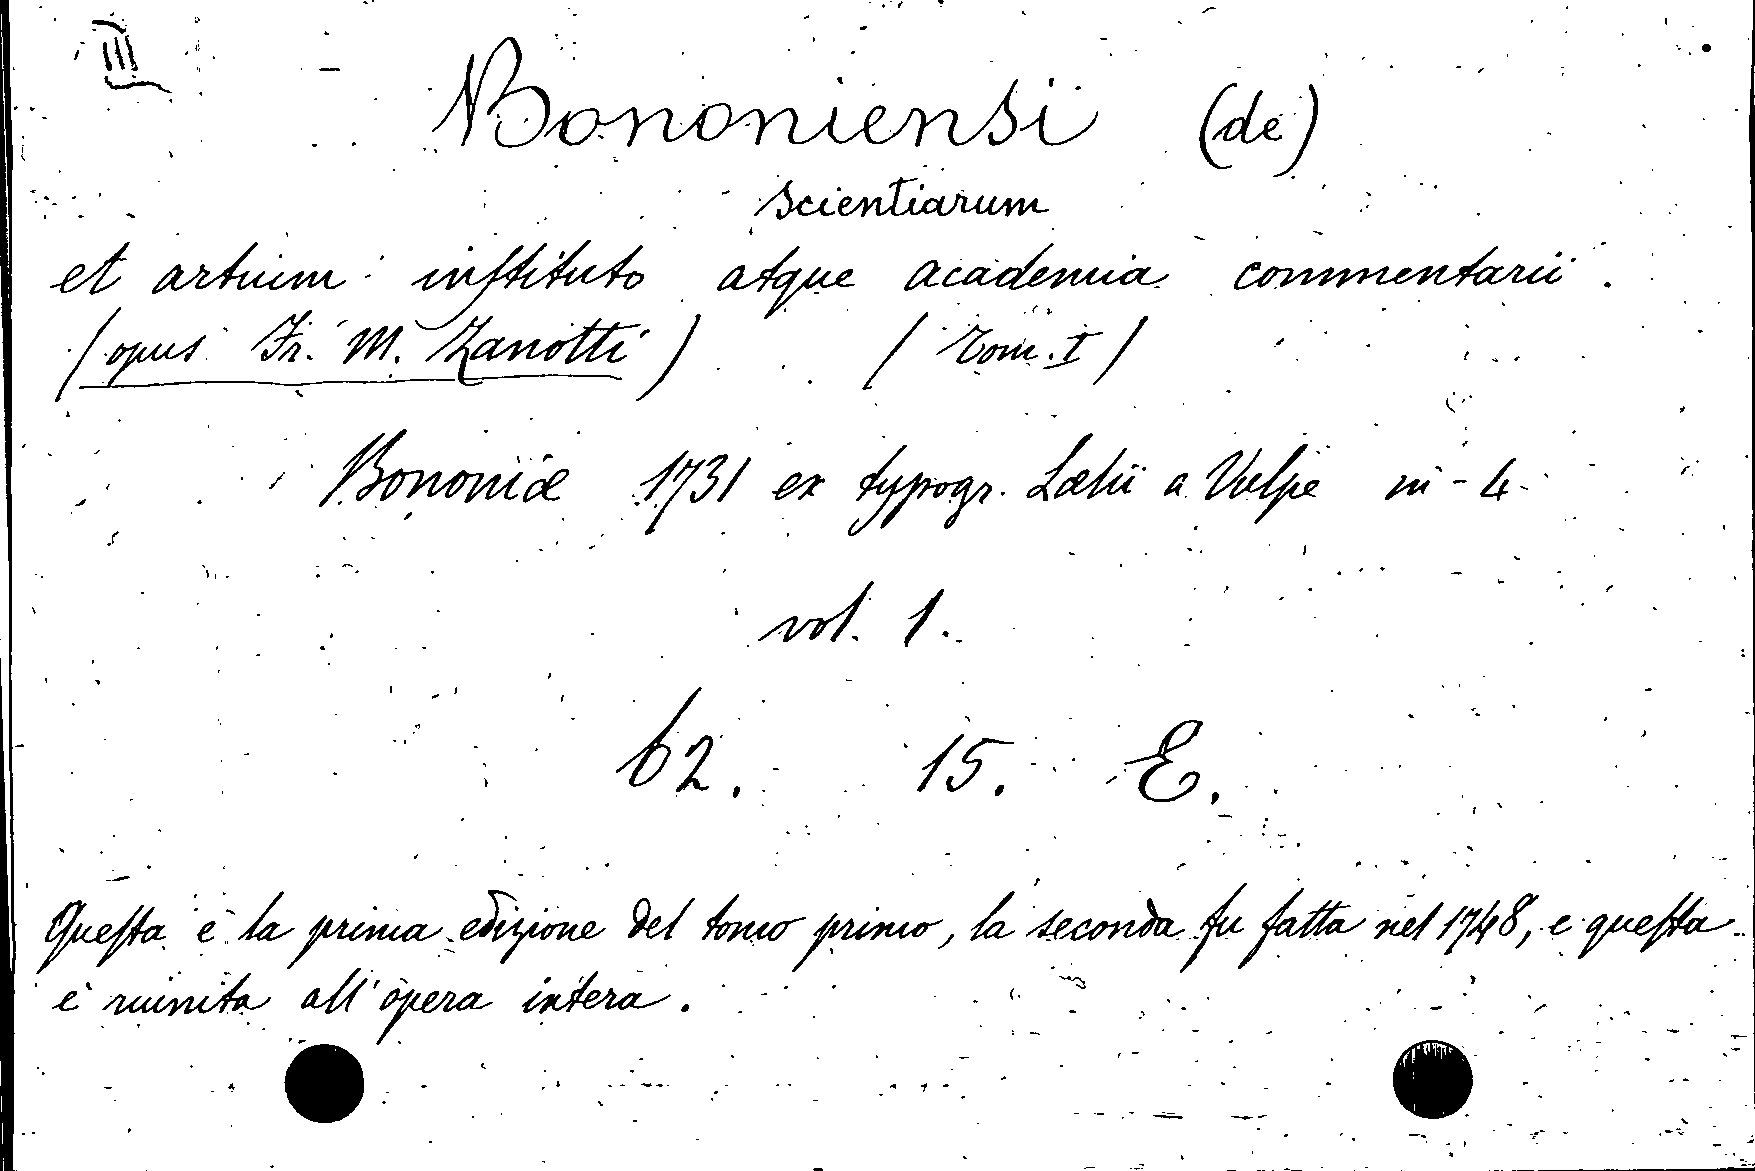 III
Bononiensi (de)
scientiarum
et artium instituto atque academia commentarii.
(opus Fr. M. Zanotti) (Tom. I)
Bononiæ 1731 ex typogr. Lælii a Vulpe in-4
vol. 1.
62. 15. E.
Questa è la prima edizione del tomo primo, la seconda fu fatta nel 1748, e questa
è riunita all'opera intera.